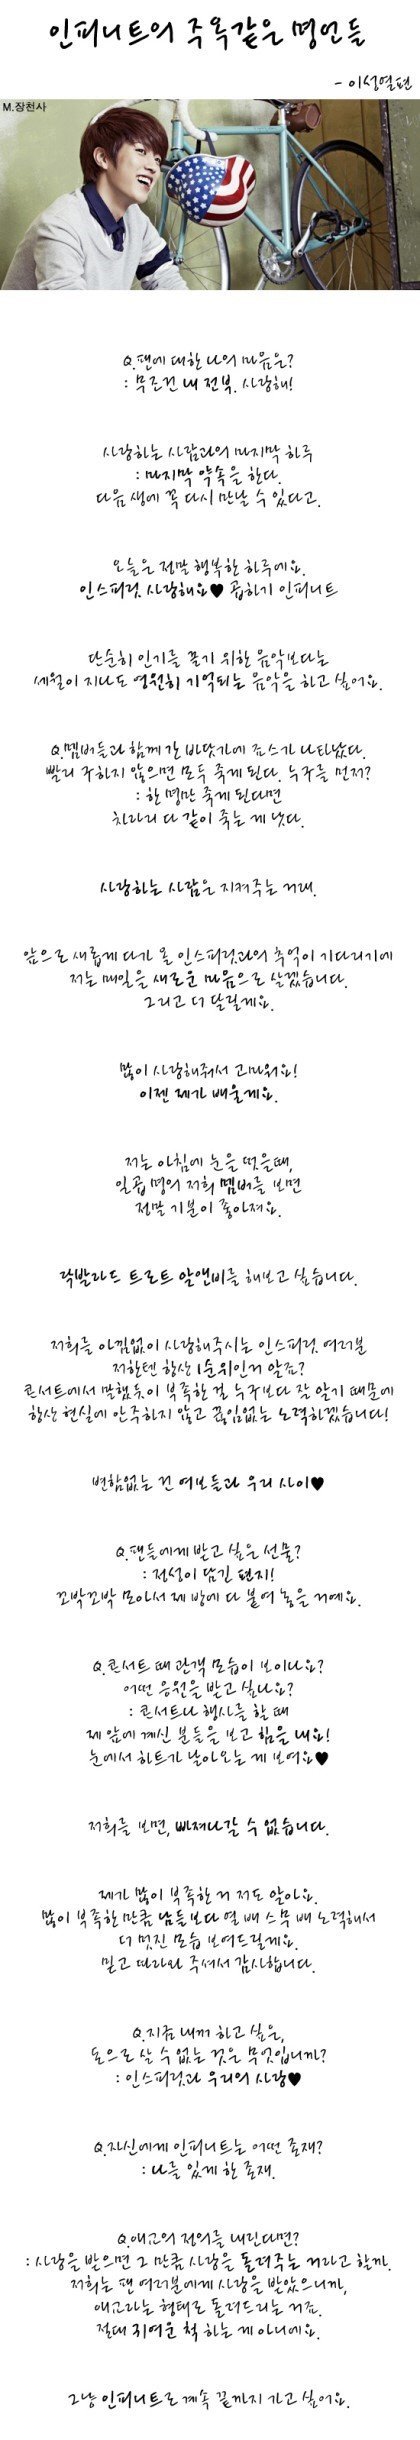 인피니트의 주옥같은 명언들
- 이성열편
M.장천사
Q.팬에 대한 나의 마음은?
: 무조건 내 전부. 사랑해!
사랑하는 사람과의 마지막 하루
: 마지막 약속을 한다.
다음 생에 꼭 다시 만날 수 있다고.
오늘은 정말 행복한 하루에요.
인스피릿 사랑해요♥ 곱하기 인피니트
단순히 인기를 끌기 위한 음악보다는
세월이 지나도 영원히 기억되는 음악을 하고 싶어요.
Q.멤버들과 함께 간 바닷가에 죠스가 나타났다.
빨리 구하지 않으면 모두 죽게 된다. 누구를 먼저?
: 한 명만 죽게 된다면
차라리 다 같이 죽는 게 낫다.
사랑하는 사람은 지켜주는 거래.
앞으로 새롭게 다가 올 인스피릿과의 추억이 기다리기에
저는 매일을 새로운 마음으로 살겠습니다.
그리고 더 달릴게요.
많이 사랑해줘서 고마워요!
이젠 제가 배울게요.
저는 아침에 눈을 떴을때,
일곱 명의 저희 멤버를 보면
정말 기분이 좋아져요.
락발라드 트로트 알앤비를 해보고 싶습니다.
저희를 아낌없이 사랑해주시는 인스피릿 여러분
저한텐 항상 1순위인거 알죠?
콘서트에서 말했듯이 부족한 걸 누구보다 잘 알기 때문에
항상 현실에 안주하지 않고 끊임없는 노력하겠습니다!
변함없는 건 여보들과 우리 사이♥
Q.팬들에게 받고 싶은 선물?
: 정성이 담긴 편지!
꼬박꼬박 모아서 제 방에 다 붙여 놓을 거예요.
Q.콘서트 때 관객 모습이 보이나요?
어떤 응원을 받고 싶나요?
: 콘서트나 행사를 할 때
제 앞에 계신 분들을 보고 힘을 내요!
눈에서 하트가 날아오는 게 보여요♥
저희를 보면, 빠져나갈 수 없습니다.
제가 많이 부족한 거 저도 알아요.
많이 부족한 만큼 남들보다 열 배 스무 배 노력해서
더 멋진 모습 보여드릴게요.
믿고 따라와 주셔서 감사합니다.
Q.지금 내가 하고 싶은,
돈으로 살 수 없는 것은 무엇입니까?
: 인스피릿과 우리의 사랑♥
Q.자신에게 인피니트는 어떤 존재?
: 나를 있게 한 존재.
Q.애교의 정의를 내린다면?
: 사랑을 받으면 그 만큼 사랑을 돌려주는 거라고 할까.
저희는 팬 여러분에게 사랑을 받았으니까,
애교라는 형태로 돌려드리는 거죠.
절대 귀여운 척 하는 게 아니에요.
그냥 인피니트로 계속 끝까지 가고 싶어요.